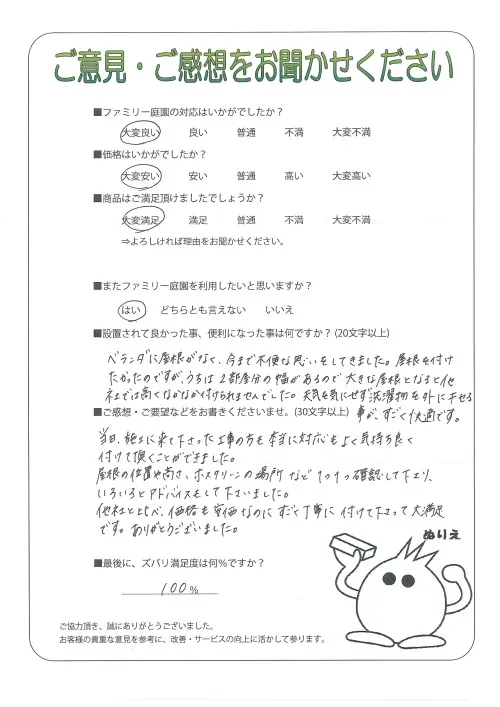 ご意見・ご感想をお聞かせください
■ファミリー庭園の対応はいかがでしたか？
大変良い 良い 普通 不満 大変不満
■価格はいかがでしたか？
大変安い 安い 普通 高い 大変高い
■商品はご満足頂けましたでしょうか？
大変満足 満足 普通 不満 大変不満
⇒よろしければ理由をお聞かせください。
■またファミリー庭園を利用したいと思いますか？
はい どちらとも言えない いいえ
■設置されて良かった事、便利になった事は何ですか？(20文字以上)
ベランダに屋根がなく、今まで不便な思いをしてきました。屋根を付け
たかったのですが、うちは2部屋分の幅があるので大きな屋根となると他
社では高くなかなか付けられませんでした。天気を気にせず洗濯物を外に干せる
事が、すごく快適です。
■ご感想・ご要望などをお書きくださいませ。(30文字以上)
当日、施工に来て下さった工事の方も本当に対応もよく気持ち良く
付けて頂くことができました。
屋根の位置や高さ、ホスクリーンの場所など1つ1つ確認して下さり、
いろいろとアドバイスもして下さいました。
他社と比べ、価格も安価なのにすごく丁寧に付けて下さって大満足
です。ありがとうございました。
ぬりえ
■最後に、ズバリ満足度は何%ですか？
100%
ご協力頂き、誠にありがとうございました。
お客様の貴重な意見を参考に、改善・サービスの向上に活かして参ります。